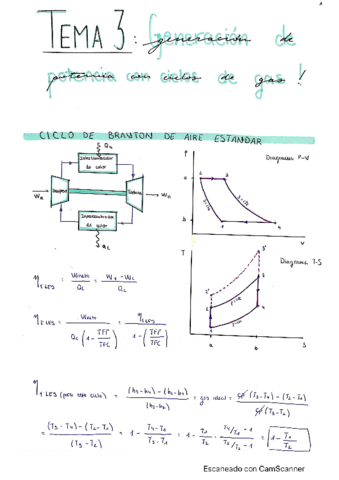 TEMA 3: generación de
potencia con ciclos de gas!
CICLO DE BRAYTON DE AIRE ESTANDAR
Intercambiador de calor
Turbina
Intercambiador de calor
Diagrama P-V
P
a
b
2 3
1 4
V
Diagrama T-S
T
3'
3
2'
2
4
1
a b S
η I LES = Wneto / Qc = (Wt - Wc) / Qc
η II LES = Wneto / (Qc (1 - TFF/TFC)) = η I LES / (1 - (TFF/TFC))
η I LES (para este ciclo) = ((h3-h4) - (h2-h1)) / (h3-h2) = gas ideal = (Cp (T3-T4) - (T2-T1)) / (Cp (T3-T2))
= ((T3-T4) - (T2-T1)) / (T3-T2) = 1 - (T4-T1)/(T3-T2) = 1 - T1/T2 · (T4/T1 - 1)/(T3/T2 - 1) = 1 - T1/T2
Escaneado con CamScanner